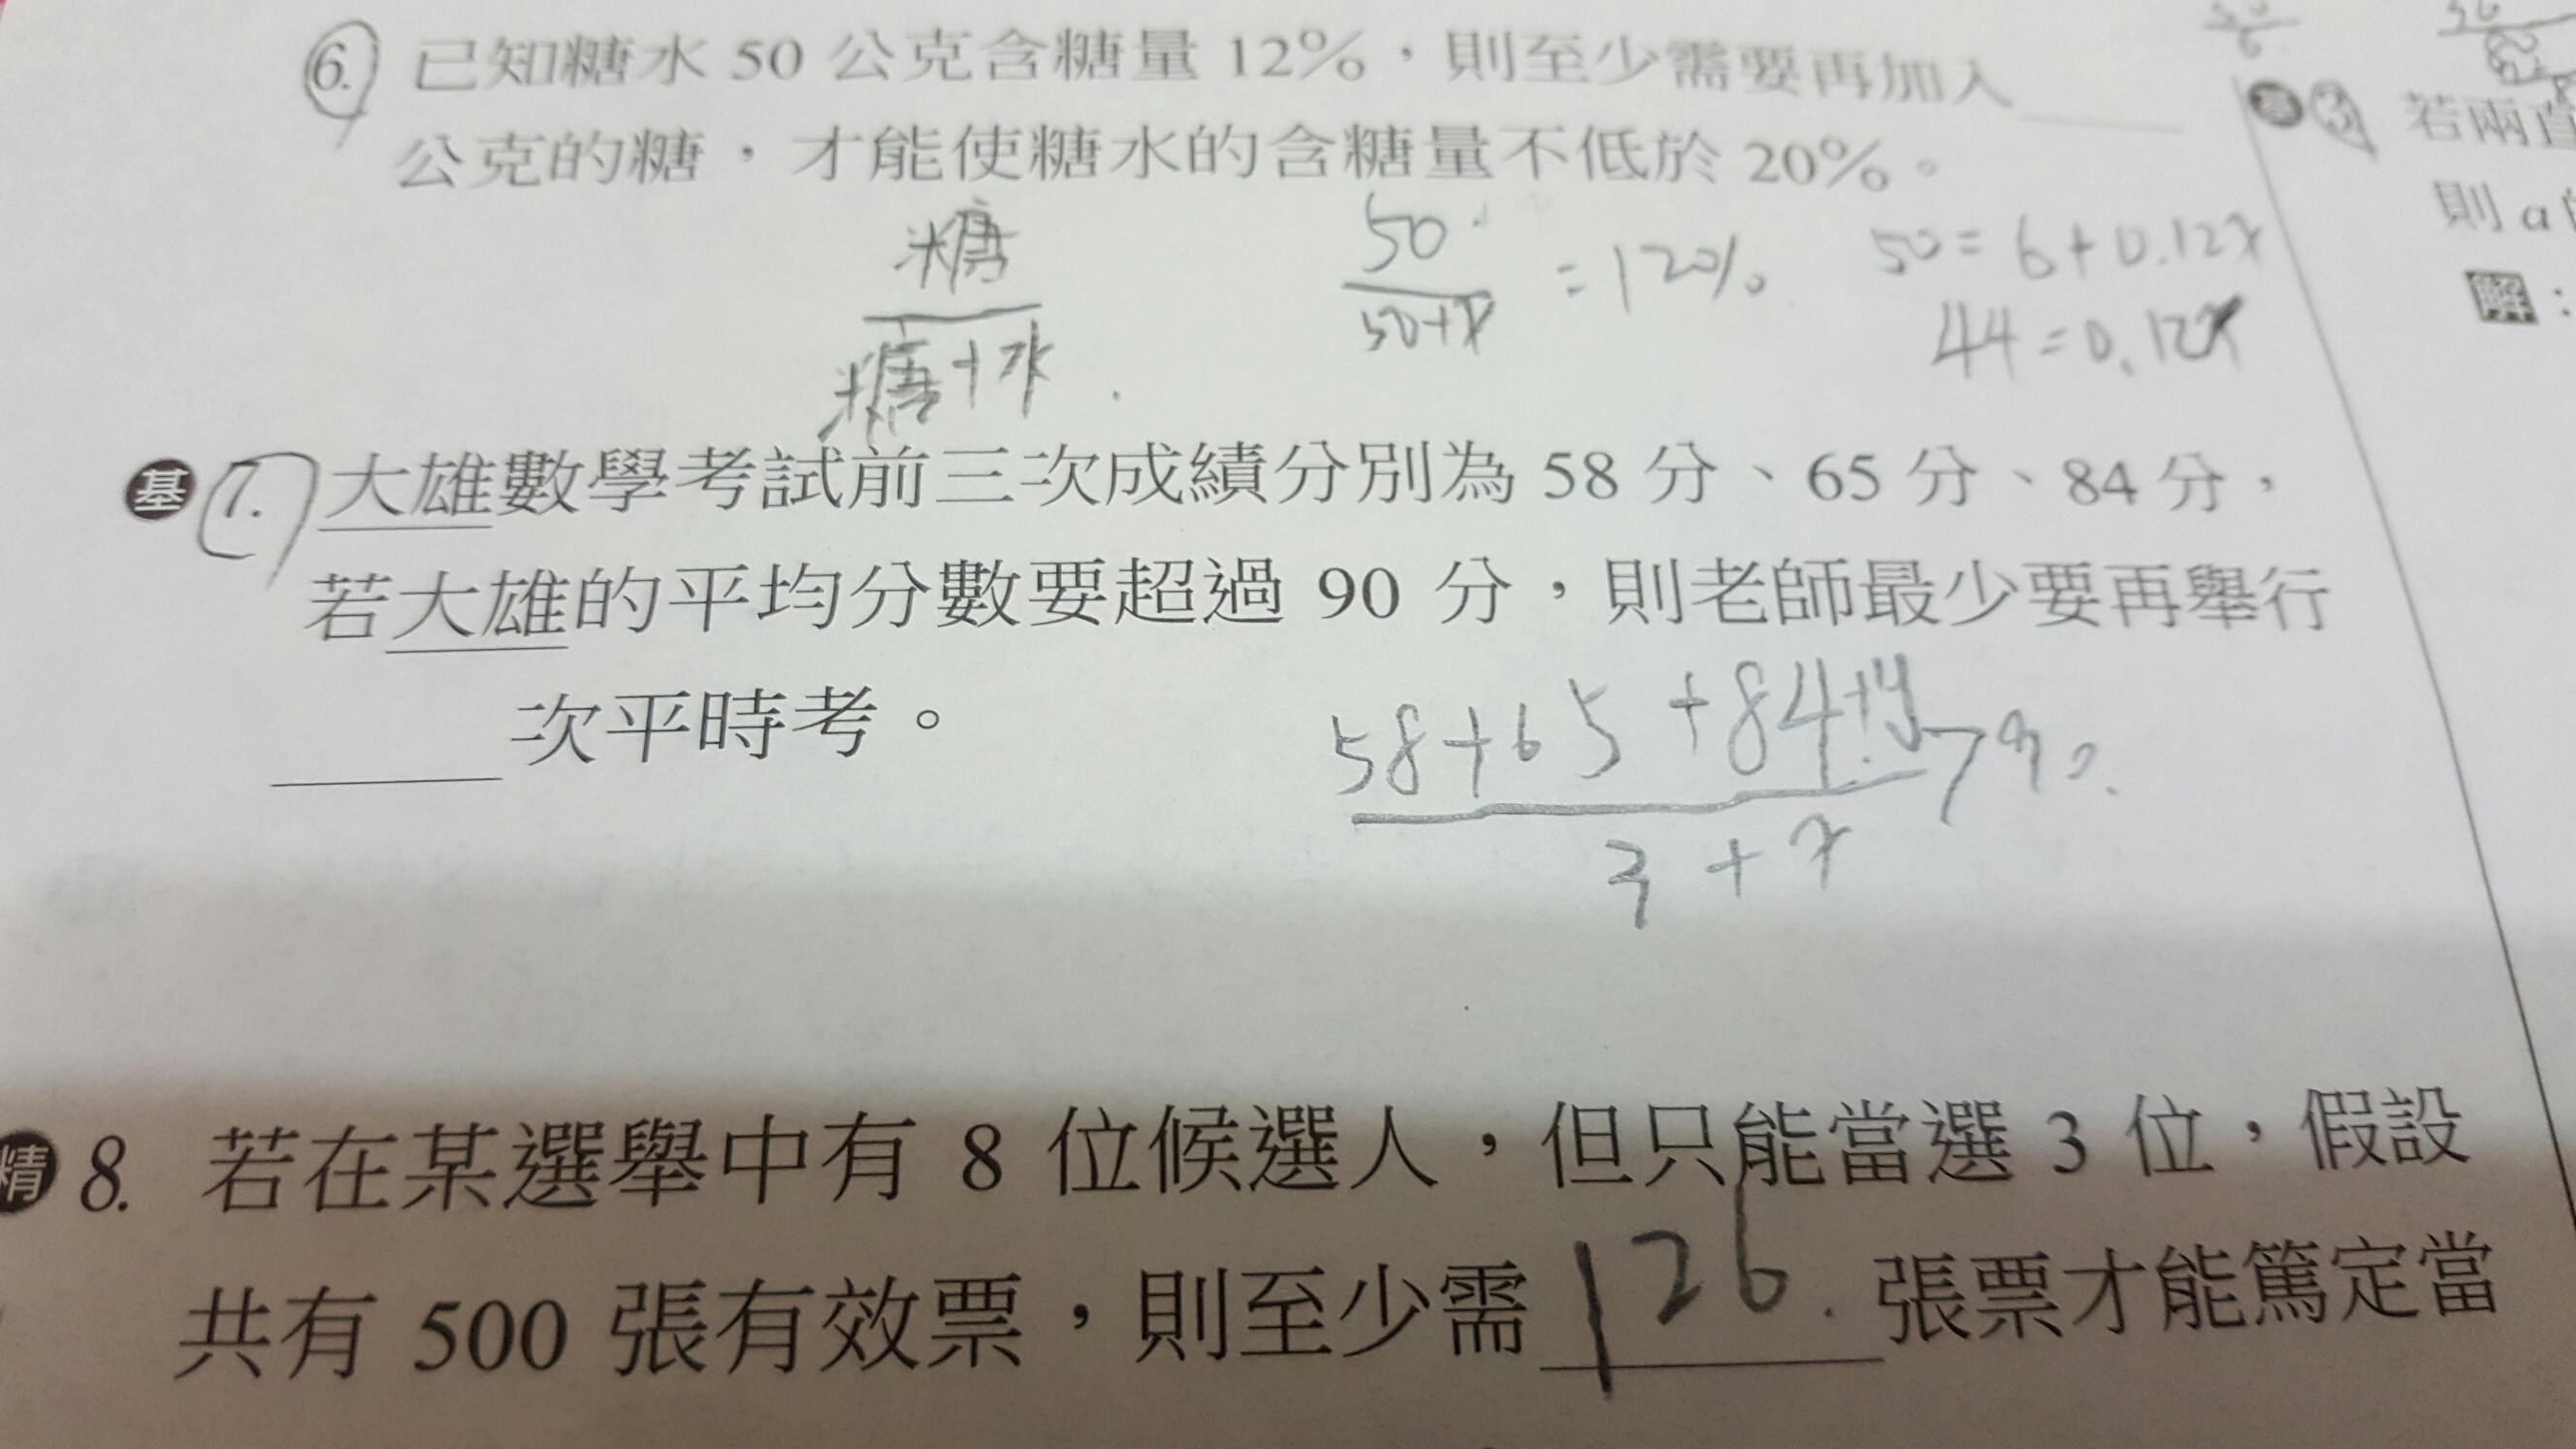 6. 已知糖水 50 公克含糖量 12%，則至少需要再加入
公克的糖，才能使糖水的含糖量不低於 20%。
糖
糖+水
50
50+x
=12%
50=6+0.12x
44=0.12x
基 7. 大雄數學考試前三次成績分別為 58 分、65 分、84 分，
若大雄的平均分數要超過 90 分，則老師最少要再舉行
次平時考。
58+65+84+y
3+x
>90.
精 8. 若在某選舉中有 8 位候選人，但只能當選 3 位，假設
共有 500 張有效票，則至少需 126. 張票才能篤定當
若兩直
則 a
解：